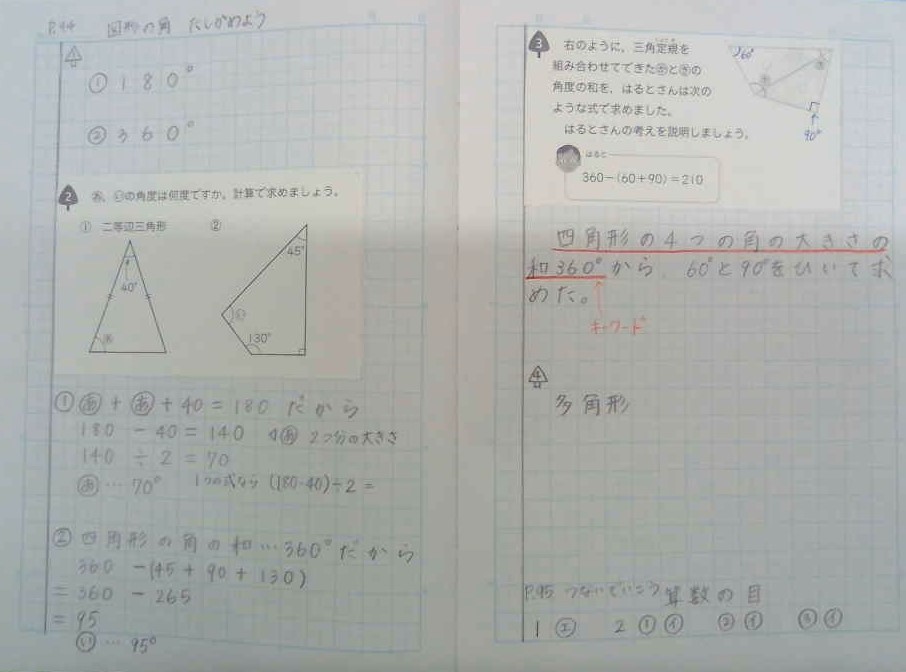 P.94 図形の角 たしかめよう
1
① 180°
② 360°
2 あ、いの角度は何度ですか。計算で求めましょう。
① 二等辺三角形 ②
40°
あ
45°
い
130°
① あ + あ + 40 = 180 だから
180 - 40 = 140 あ 2つ分の大きさ
140 ÷ 2 = 70
あ … 70° 1つの式なら (180-40)÷2=
② 四角形の角の和…360°だから
360 -(45 + 90 + 130)
= 360 - 265
= 95
い … 95°
3 右のように、三角定規を
組み合わせてできたあといの
角度の和を、はるとさんは次の
ような式で求めました。
はるとさんの考えを説明しましょう。
60°
90°
はると
360-(60+90)=210
四角形の4つの角の大きさの
和360°から、60°と90°をひいて求
めた。
キーワード
4
多角形
P.95 つないでいこう 算数の目
1 エ 2 ① イ ② イ ③ イ